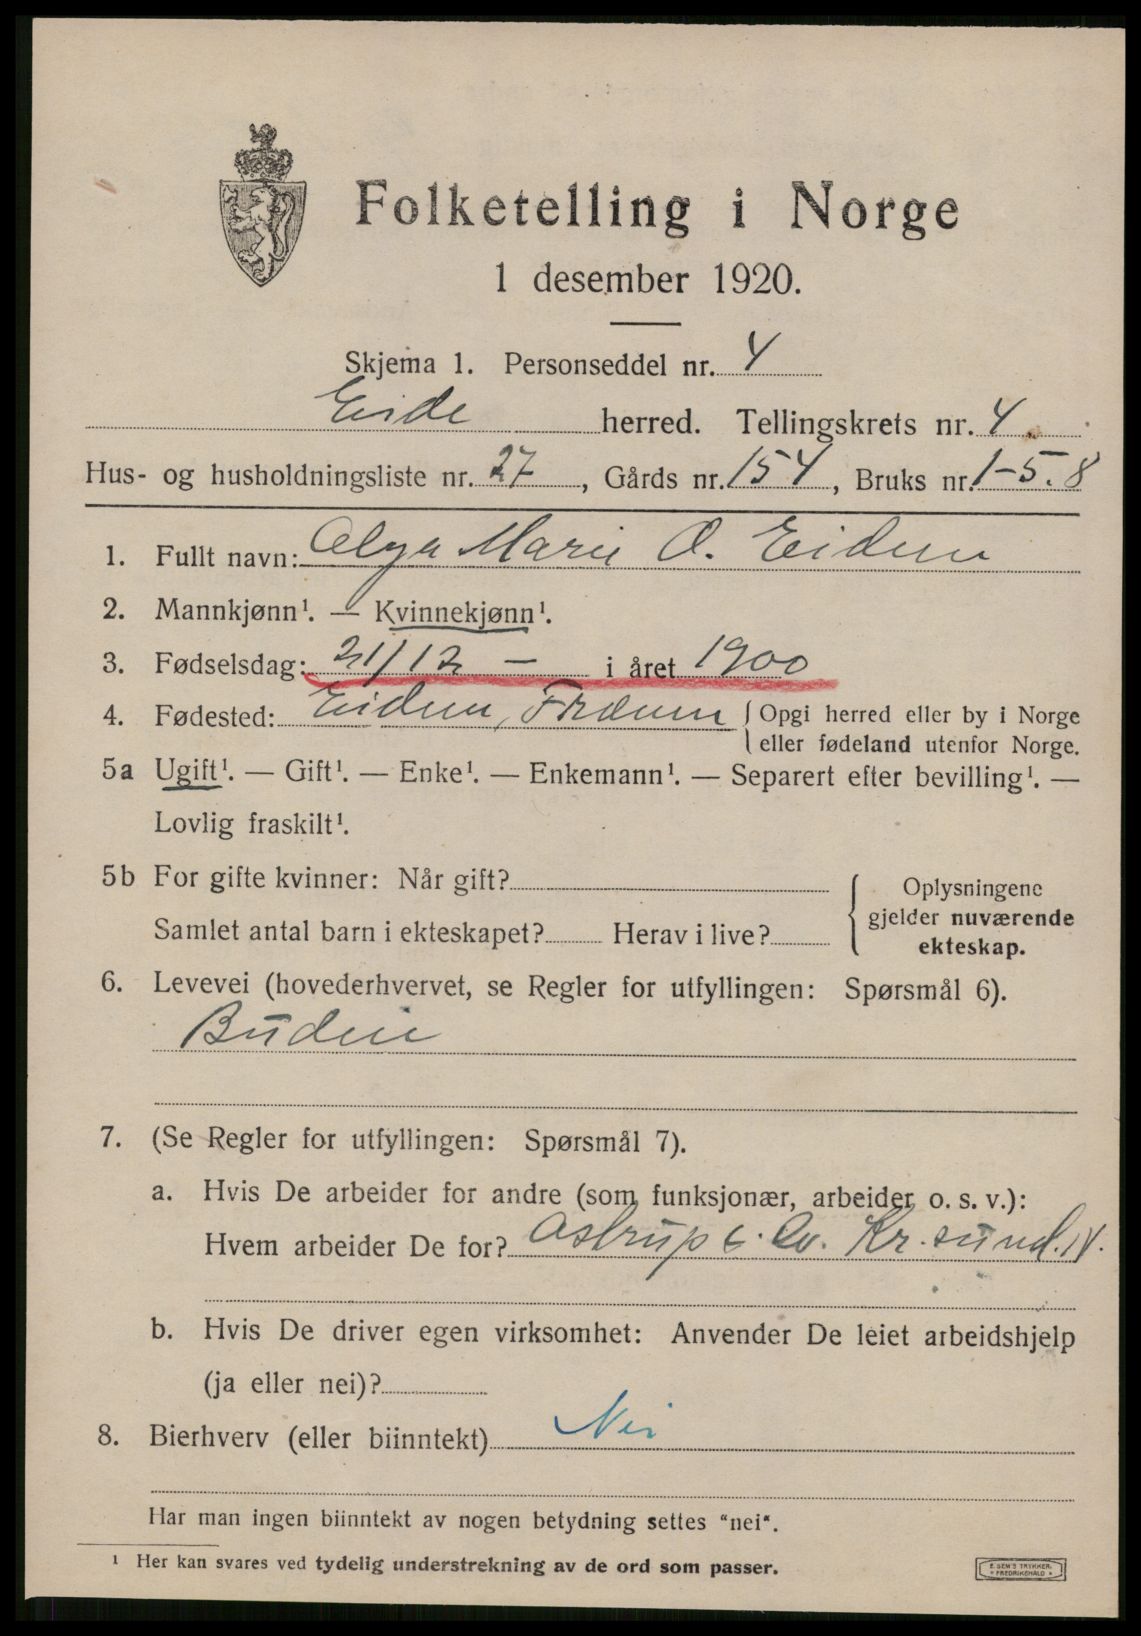 Folketelling i Norge
1 desember 1920.
Skjema 1. Personseddel nr. 4
Eide herred. Tellingskrets nr. 4
Hus- og husholdningsliste nr. 27, Gårds nr. 154, Bruks nr. 1-5.8
1. Fullt navn: Olga Marie O. Eidem
2. Mannkjønn¹. — Kvinnekjønn¹.
3. Fødselsdag: 21/12 — i året 1900
4. Fødested: Eidem, Fræna { Opgi herred eller by i Norge
eller fødeland utenfor Norge.
5a Ugift¹. — Gift¹. — Enke¹. — Enkemann¹. — Separert efter bevilling¹. —
Lovlig fraskilt¹.
5b For gifte kvinner: Når gift?
Samlet antal barn i ekteskapet? Herav i live?
Oplysningene
gjelder nuværende
ekteskap.
6. Levevei (hovederhvervet, se Regler for utfyllingen: Spørsmål 6).
Budeie
7. (Se Regler for utfyllingen: Spørsmål 7).
a. Hvis De arbeider for andre (som funksjonær, arbeider o. s. v.):
Hvem arbeider De for? Astrup & Co. Kr.sund. N.
b. Hvis De driver egen virksomhet: Anvender De leiet arbeidshjelp
(ja eller nei)?
8. Bierhverv (eller biinntekt) Nei
Har man ingen biinntekt av nogen betydning settes "nei".
¹ Her kan svares ved tydelig understrekning av de ord som passer.
E. SEM'S TRYKKERI
* FREDRIKSHALD *